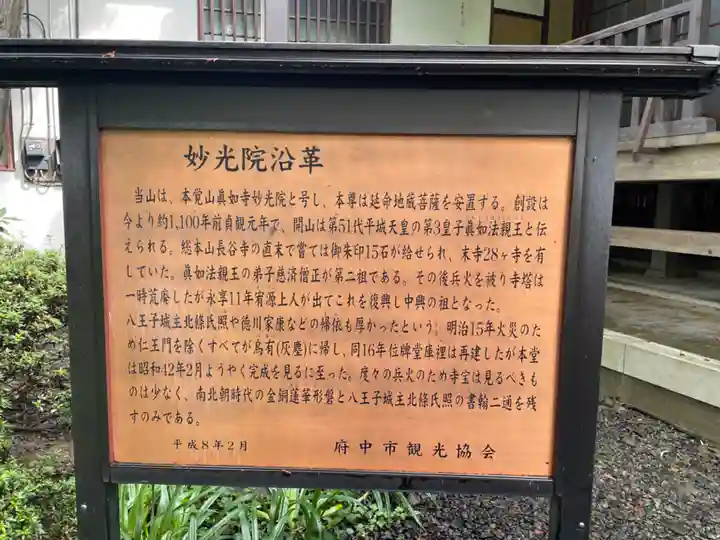 妙光院沿革
当山は、本覚山眞如寺妙光院と号し、本尊は延命地蔵菩薩を安置する。創設は
今より約1,100年前貞観元年で、開山は第51代平城天皇の第3皇子眞如法親王と伝
えられる。総本山長谷寺の直末で嘗ては御朱印15石が給せられ、末寺28ヶ寺を有
していた。眞如法親王の弟子慈済僧正が第二祖である。その後兵火を被り寺塔は
一時荒廃したが永享11年宥源上人が出てこれを復興し中興の祖となった。
八王子城主北條氏照や徳川家康などの帰依も厚かったという。明治15年火災のた
め仁王門を除くすべてが烏有(灰塵)に帰し、同16年位牌堂庫裡は再建したが本堂
は昭和42年2月ようやく完成を見るに至った。度々の兵火のため寺宝は見るべきも
のは少なく、南北朝時代の金銅蓮華形磬と八王子城主北條氏照の書翰二通を残
すのみである。
平成8年2月 府中市観光協会